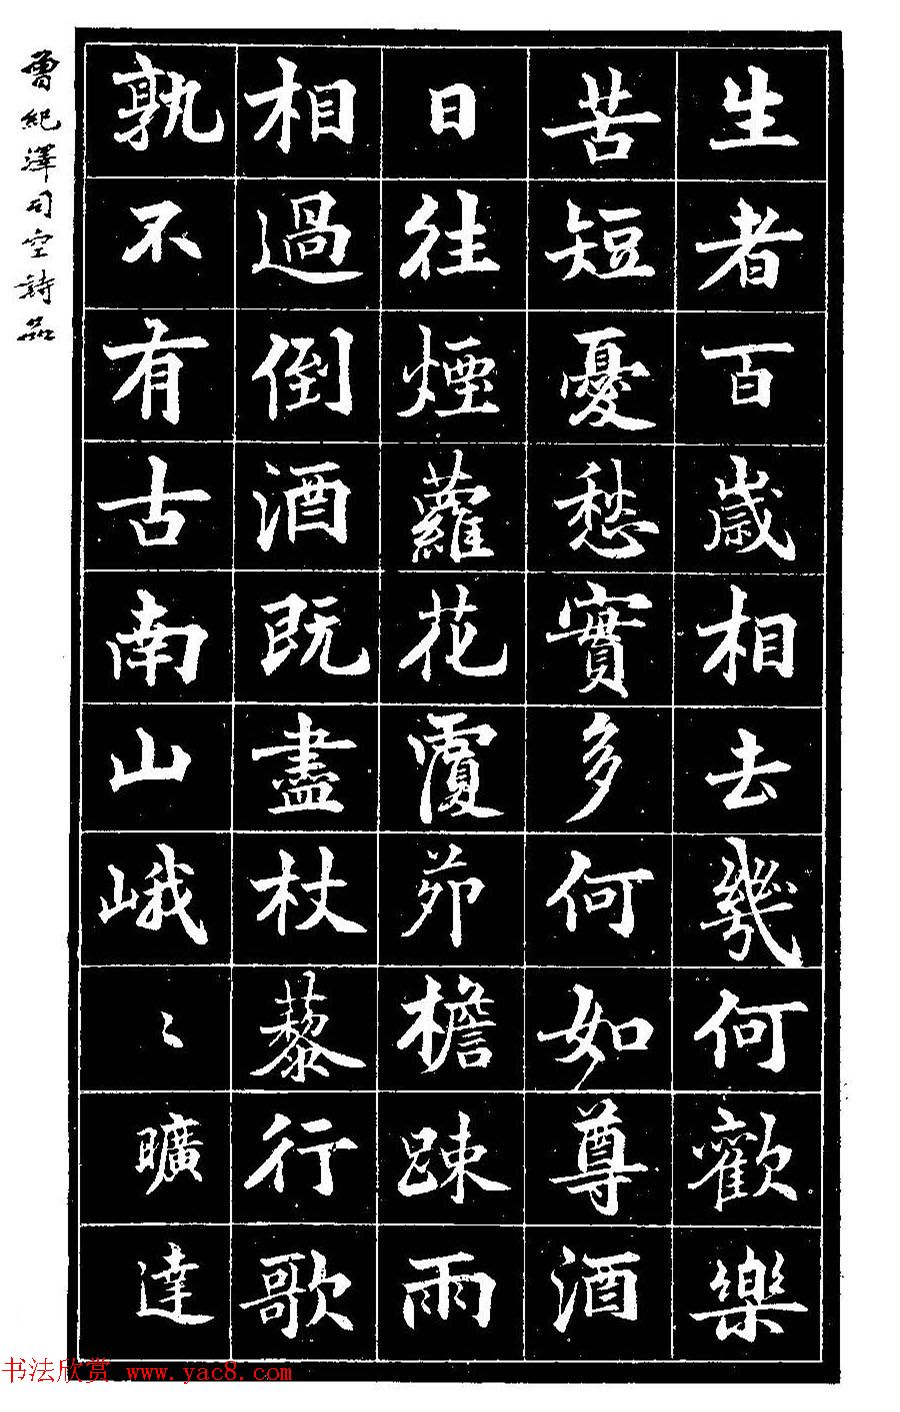 生者百歲相去幾何歡樂
苦短憂愁實多何如尊酒
日往煙蘿花覆茆檐踈雨
相過倒酒既盡杖藜行歌
孰不有古南山峨〻曠達
曾紀澤司空詩品
书法欣赏 www.yac8.com